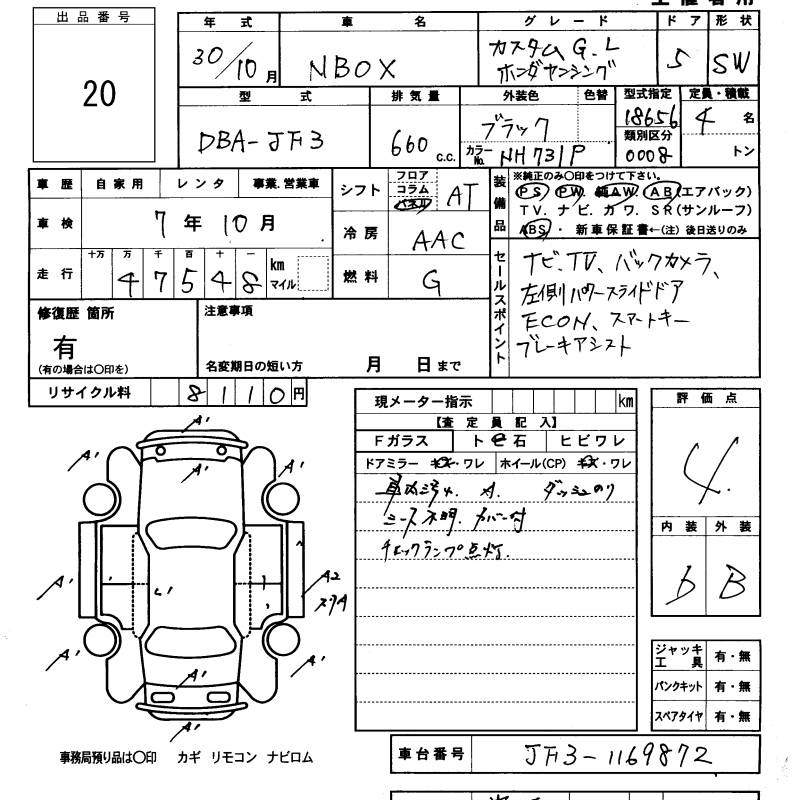 出品番号
20
年式 車名 グレード ドア 形状
30/10月 NBOX カスタム G.L ホンダセンシング 5 SW
型式 排気量 外装色 色替 型式指定 定員・積載
DBA-JF3 660 c.c. ブラック 18656 4 名
カラーNo. NH731P 類別区分 0008 トン
車歴 自家用 レンタ 事業.営業車
車検 7年10月
走行 十万 万 千 百 十 一
47548 km マイル
シフト フロア コラム パネル AT
冷房 AAC
燃料 G
装備品
※純正のみ〇印をつけて下さい。
PS PW. 純AW. AB(エアバック)
TV. ナビ. カワ. SR(サンルーフ)
ABS ・ 新車保証書←(注)後日送りのみ
セールスポイント
ナビ、TV、バックカメラ、
左側パワースライドドア
ECON、スマートキー
ブレーキアシスト
修復歴 箇所
有
(有の場合は〇印を)
注意事項
名変期日の短い方 月 日まで
リサイクル料 8110円
現メーター指示 km
【査定員記入】
Fガラス ト 石 ヒビワレ
ドアミラー キズ・ワレ ホイール(CP) キズ・ワレ
車内汚れ. A. ダッシュのり
シース不明. カバー付
チェックランプ点灯.
評価点
4.
内装 外装
b B
A' A' A' A' A' A' A' A' A' A'
A2
スリA
ジャッキ工具 有・無
パンクキット 有・無
スペアタイヤ 有・無
事務局預り品は〇印 カギ リモコン ナビロム
車台番号 JF3-1169872